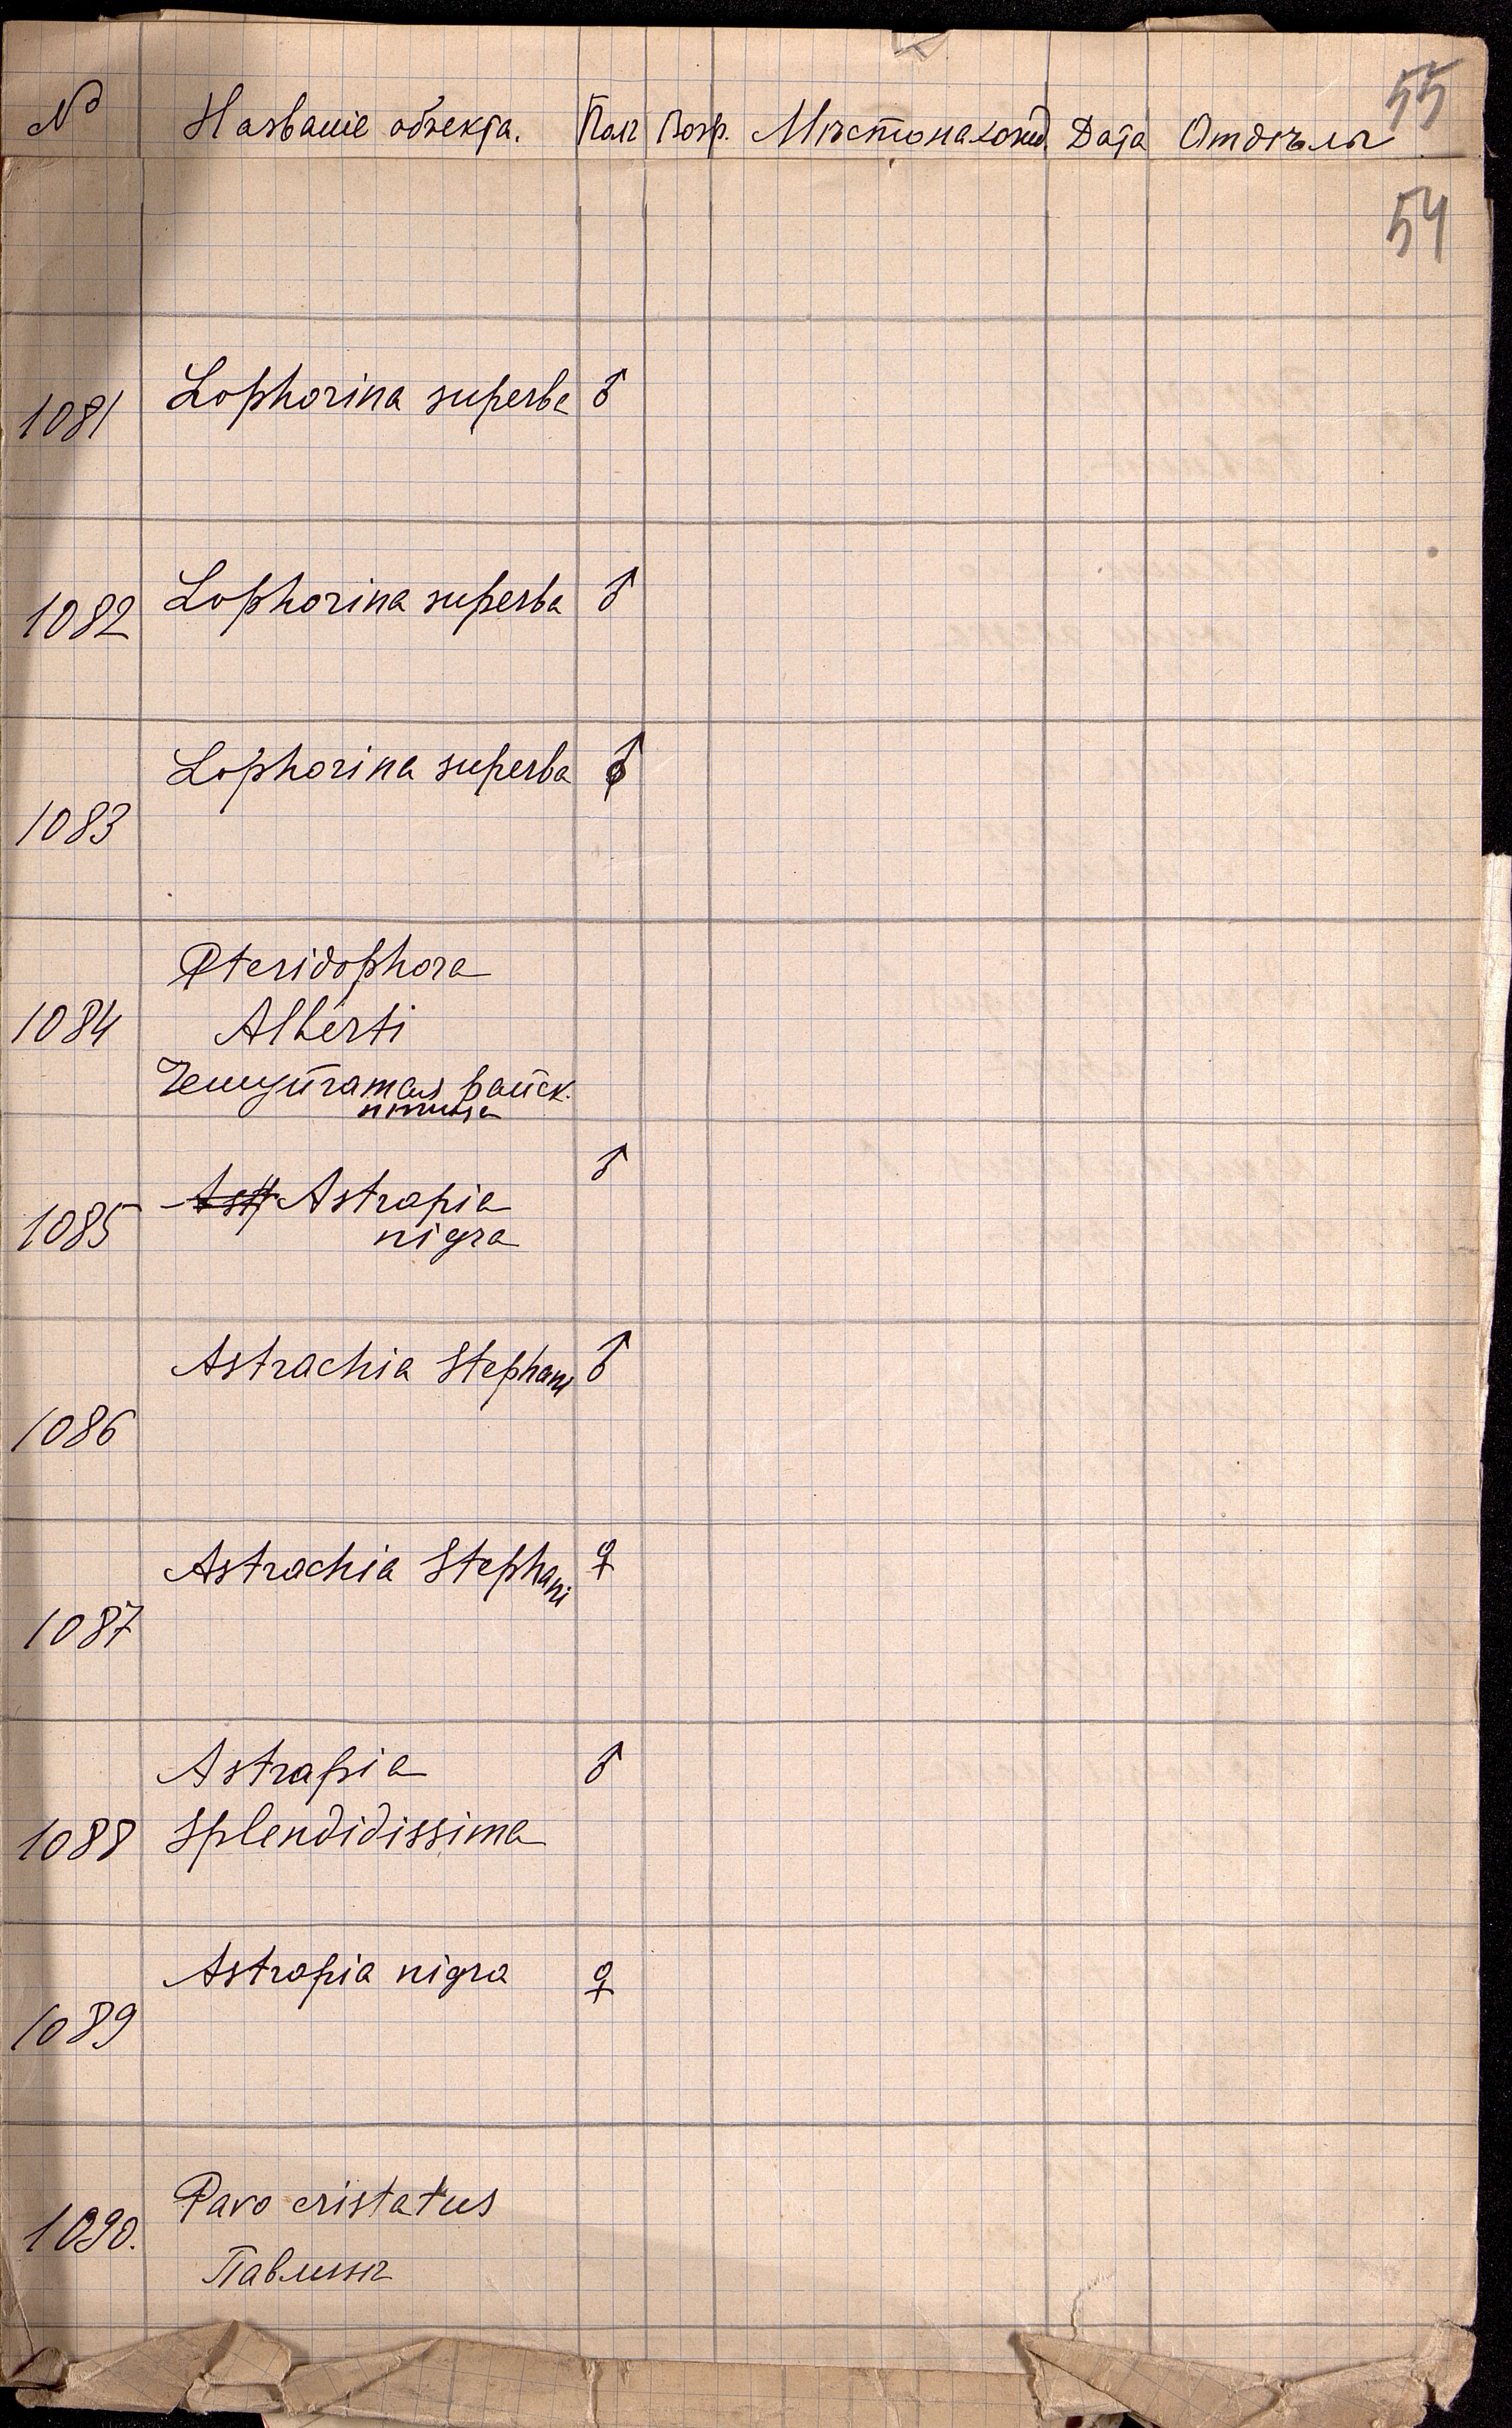 55
№ Названіе объекта. Полъ Возр. Мѣстонахожд. Дата Отдѣлъ
54
1081 Lophorina superba ♂
1082 Lophorina superba ♂
1083 Lophorina superba ♂
Pteridophora
1084 Alberti
Чешуйчатая райск.
птица
♂
1085 Ast Astrapia
nigra
Astrachia Stephani ♂
1086
Astrachia Stephani ♀
1087
Astrapia ♂
1088 splendidissima
Astrapia nigra ♀
1089
Pavo cristatus
1090.
Павлинъ